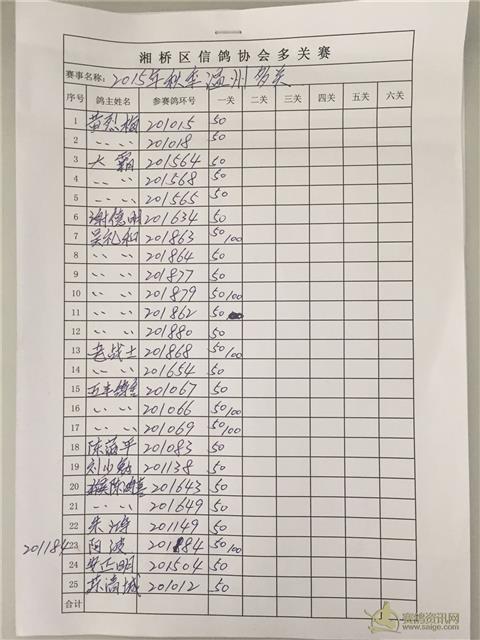 湘桥区信鸽协会多关赛
赛事名称: 2015年秋季温州多关
序号 鸽主姓名 参赛鸽环号 一关 二关 三关 四关 五关 六关
1 黄烈梅 201015 50
2 〃 〃 201018 50
3 大霸 201564 50
4 〃 〃 201568 50
5 〃 〃 201565 50
6 谢信明 201634 50
7 吴礼和 201863 50/100
8 〃 〃 201864 50
9 〃 〃 201877 50
10 〃 〃 201879 50/100
11 〃 〃 201862 50
12 〃 〃 201880 50
13 老战士 201868 50/100
14 〃 〃 201654 50
15 五丰 201067 50
16 〃 〃 201066 50/100
17 〃 〃 201069 50/100
18 陈 平 201083 50
19 刘少 201138 50
20 201643 50
21 〃 〃 201649 50
22 朱 201149 50
201184 23 阿波 201184 50/100
24 201504 50
25 城 201012 50
合计
赛鸽资讯网
www.saige.com